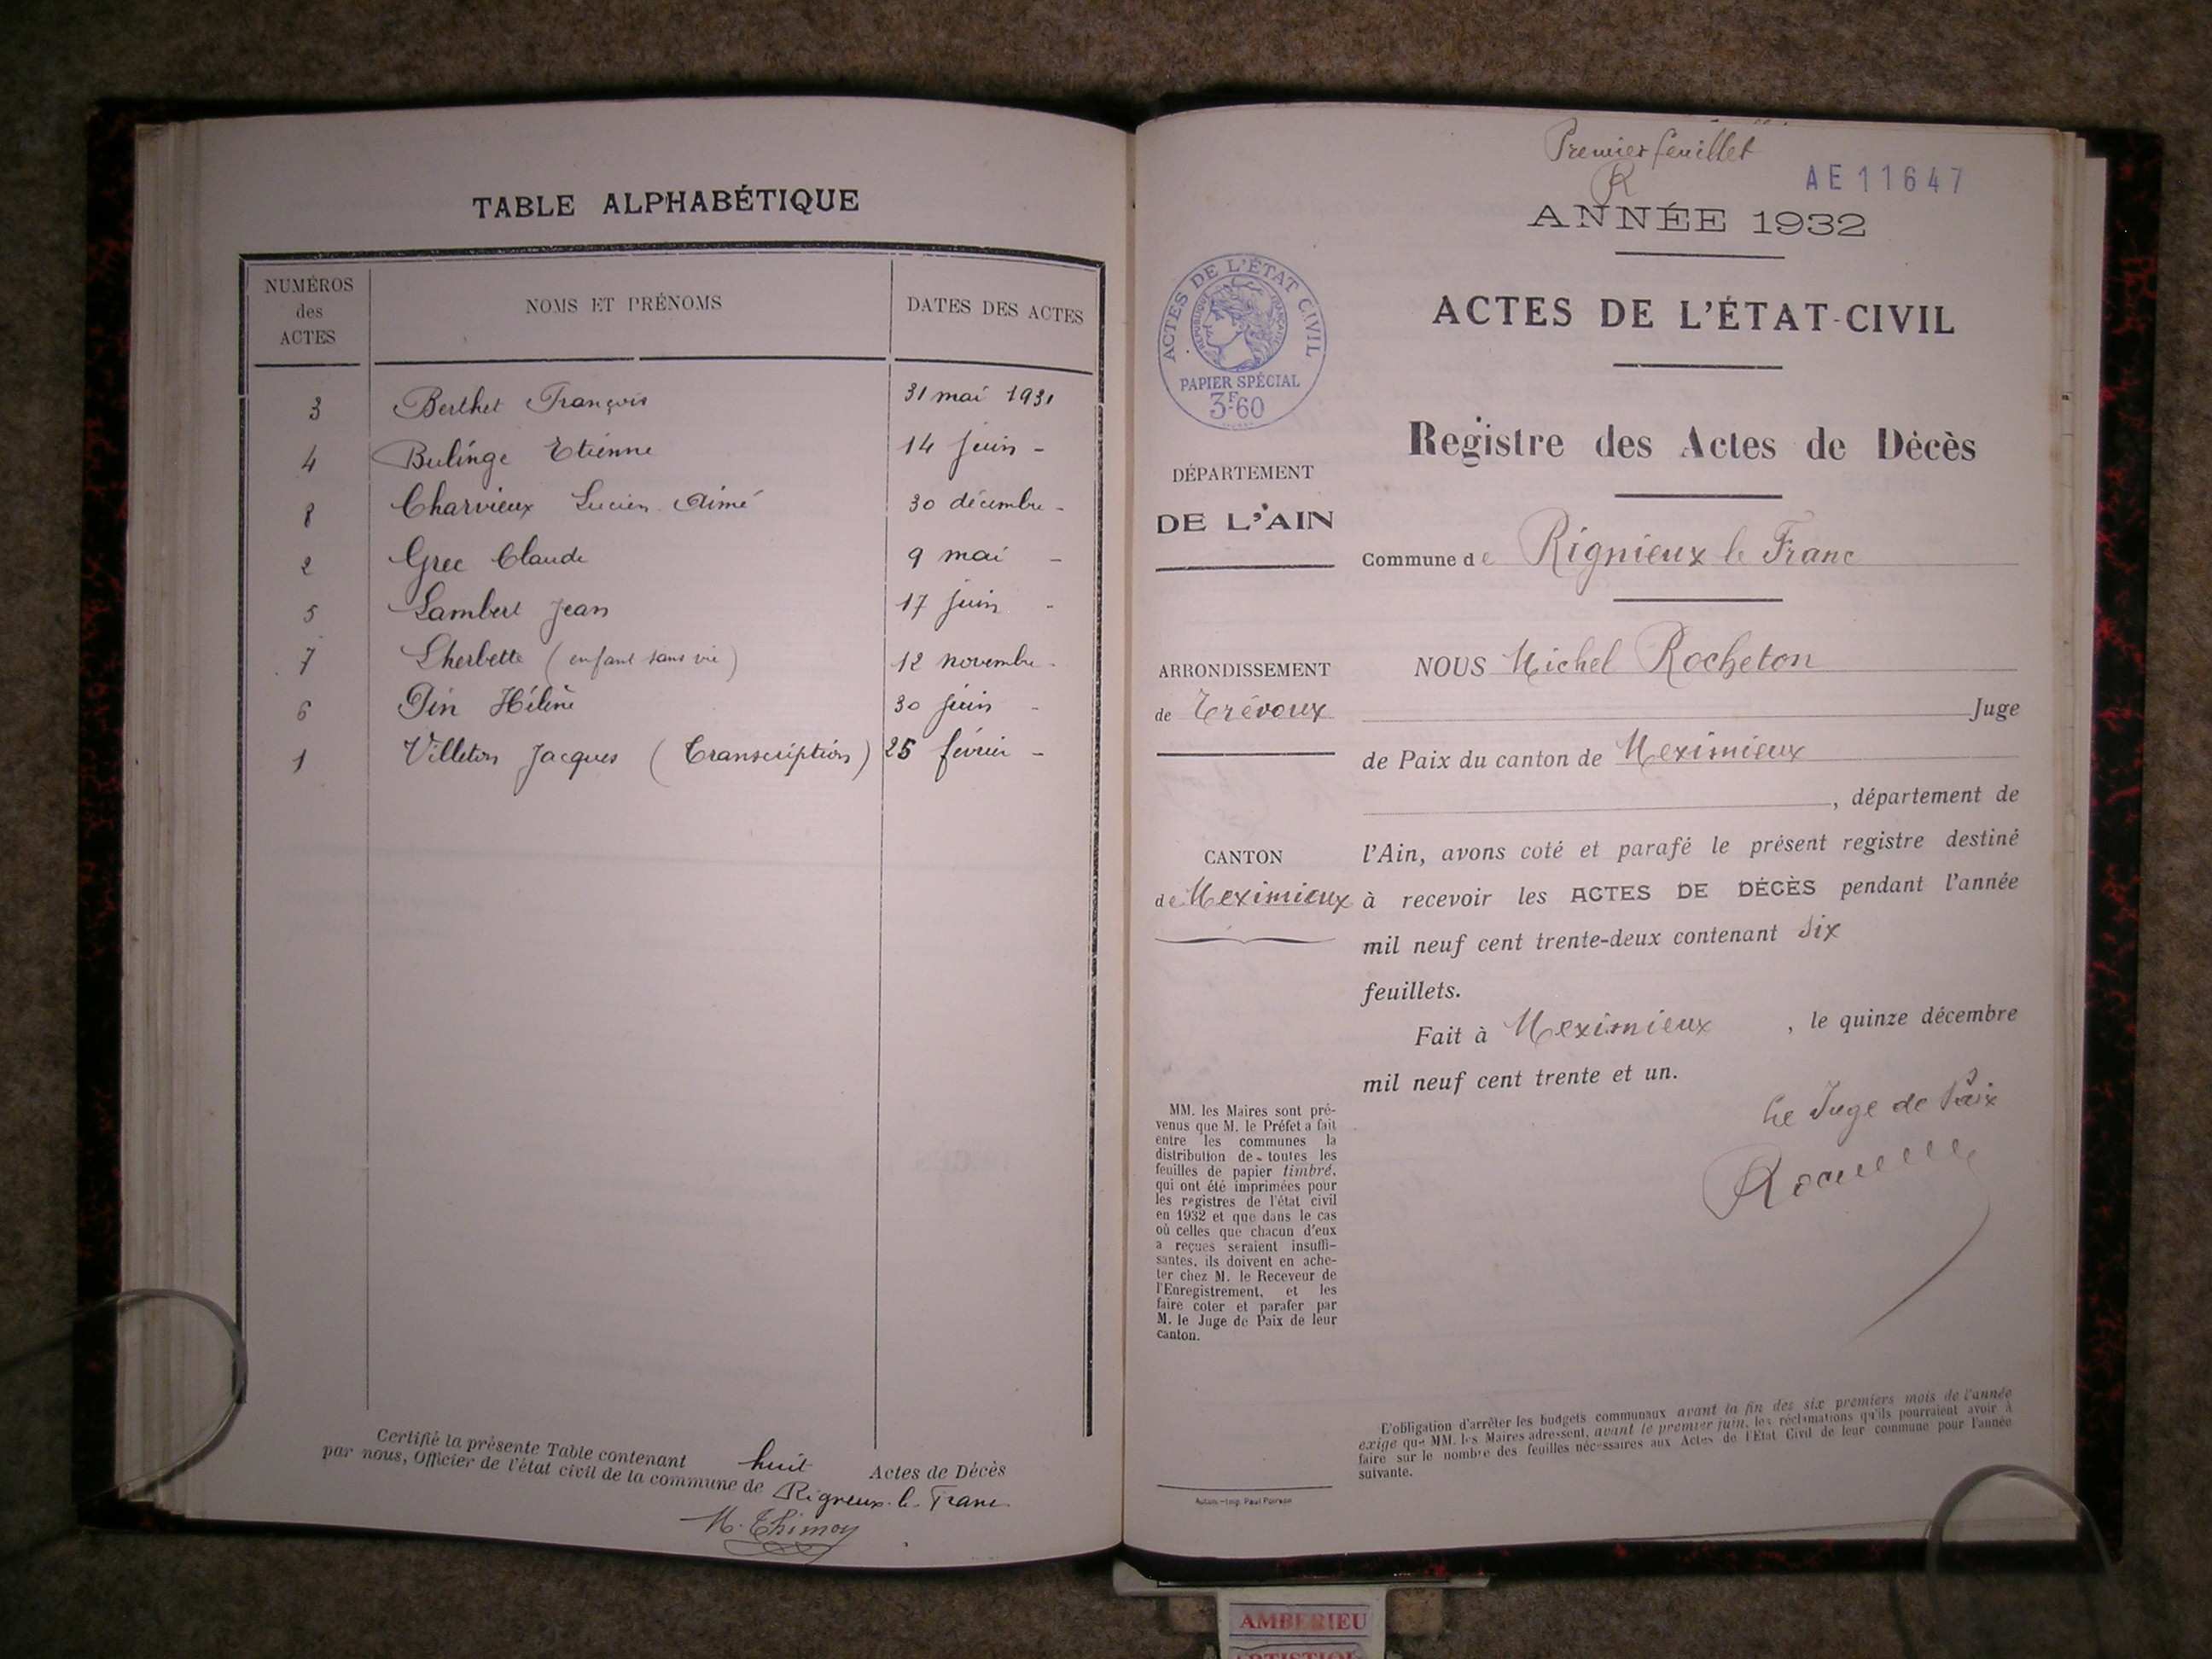 TABLE ALPHABÉTIQUE
NUMÉROS des ACTES
NOMS ET PRÉNOMS
DATES DES ACTES
3 Berthet François 31 mai 1931
4 Bulinge Etienne 14 juin -
8 Charvieux Lucien Aimé 30 décembre -
2 Grec Claude 9 mai -
5 Lambert Jean 17 juin -
7 Lherbette (enfant sans vie) 12 novembre -
6 Pin Hélène 30 juin -
1 Villeton Jacques (Transcription) 25 février -
Certifié la présente Table contenant huit Actes de Décès
par nous, Officier de l'état civil de la commune de Rigneux-le-Franc
M. Thimoy
Premier feuillet
R
AE11647
ANNÉE 1932
ACTES DE L'ÉTAT CIVIL
RÉPUBLIQUE FRANÇAISE
PAPIER SPÉCIAL
3F.60
ACTES DE L'ÉTAT-CIVIL
Registre des Actes de Décès
DÉPARTEMENT
DE L'AIN
Commune de Rignieux le Franc
ARRONDISSEMENT
de Trévoux
NOUS Michel Rocheton
Juge
de Paix du canton de Meximieux
, département de
CANTON
de Meximieux
l'Ain, avons coté et parafé le présent registre destiné
à recevoir les ACTES DE DÉCÈS pendant l'année
mil neuf cent trente-deux contenant six
feuillets.
Fait à Meximieux , le quinze décembre
mil neuf cent trente et un.
Le Juge de Paix
MM. les Maires sont pré-
venus que M. le Préfet a fait
entre les communes la
distribution de toutes les
feuilles de papier timbré,
qui ont été imprimées pour
les registres de l'état civil
en 1932 et que dans le cas
où celles que chacun d'eux
a reçues seraient insuffi-
santes, ils doivent en ache-
ter chez M. le Receveur de
l'Enregistrement, et les
faire coter et parafer par
M. le Juge de Paix de leur
canton.
L'obligation d'arrêter les budgets communaux avant la fin des six premiers mois de l'année
exige que MM. les Maires adressent, avant le premier juin, les réclamations qu'ils pourraient avoir à
faire sur le nombre des feuilles nécessaires aux Actes de l'Etat Civil de leur commune pour l'année
suivante.
Autun.-Imp. Paul Poirson
AMBERIEU